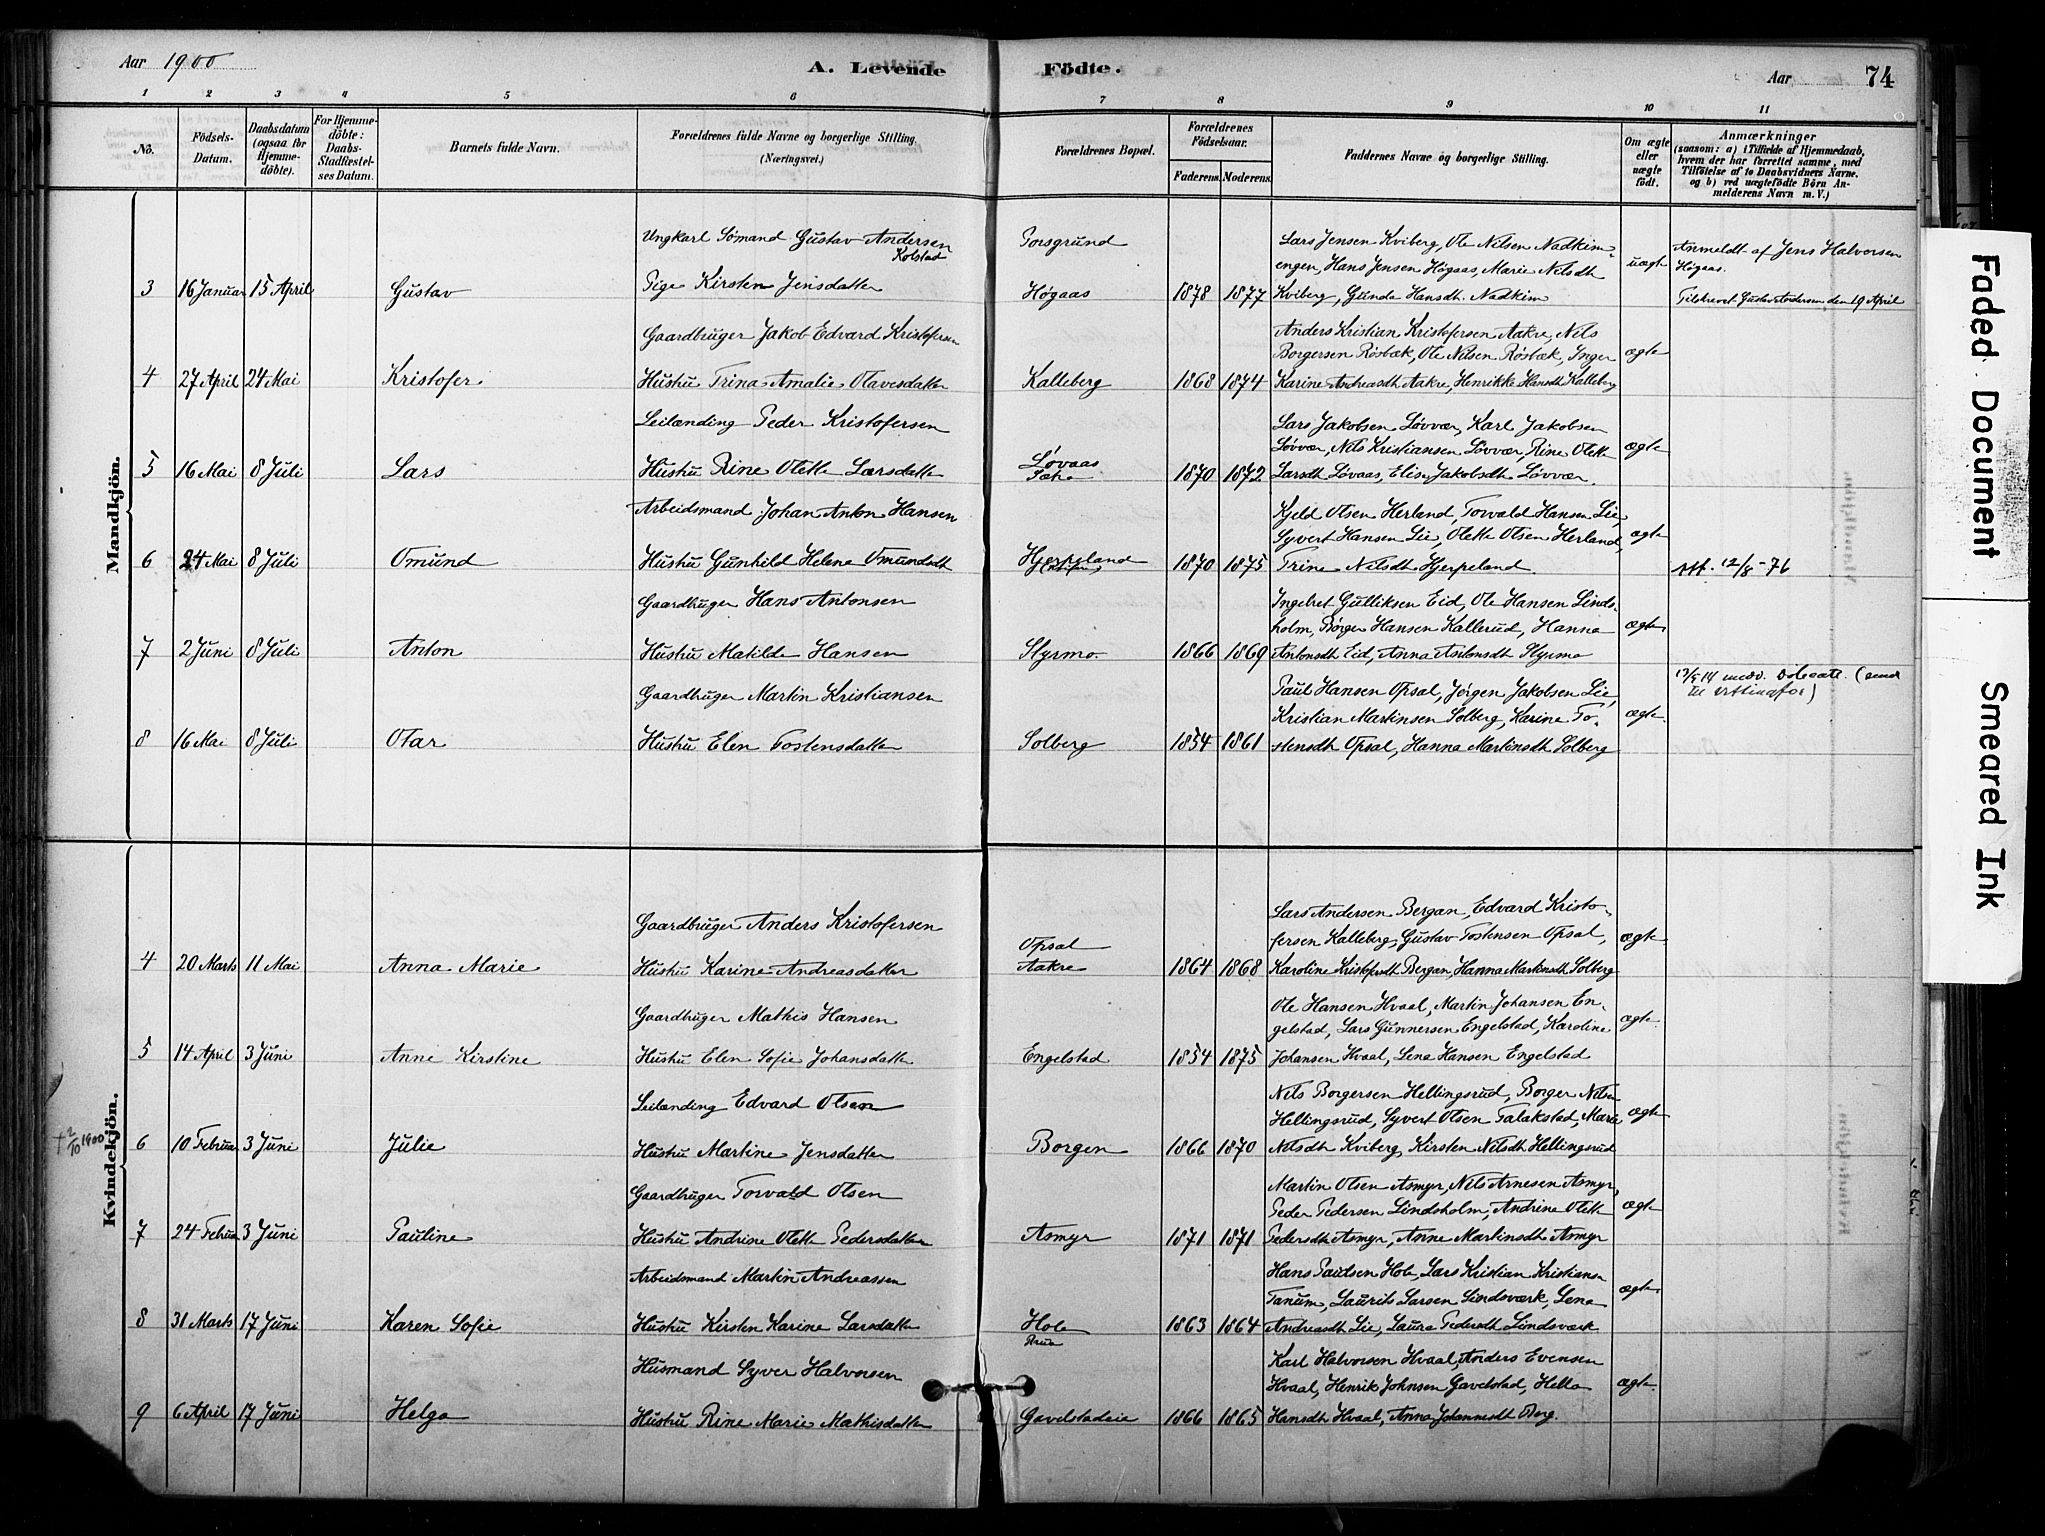 Aar 1900
A. Levende Födte.
Aar 74
1 2 3 4 5 6 7 8 9 10 11
No.
Födsels-Datum.
Daabsdatum (ogsaa for Hjemme-döbte).
For Hjemme-döbte: Daabs-Stadfæstel-ses Datum.
Barnets fulde Navn.
Forældrenes fulde Navne og borgerlige Stilling.
(Næringsvei.)
Forældrenes Bopæl.
Forældrenes Födselsaar.
Faderens. Moderens.
Faddernes Navne og borgerlige Stilling.
Om ægte eller uægte födt.
Anmærkninger
(saasom: a) i Tilfælde af Hjemmedaab,
hvem der har forrettet samme, med
Tilföielse af to Daabsvidners Navne.
og b) ved uægtefödte Börn An-
melderens Navn m. V.)
Mandkjön.
Ungkarl Sømand Gustav Andersen Kolstad
Porsgrund
Lars Jensen Kviberg, Ole Nilsen Nadkim-
engen, Hans Jensen Högaas, Marie Nilsdt
uægte
Anmeldt af Jens Halvorsen
Högaas.
3 16 Januar 15 April Gustav Pige Kirsten Jensdatter Högaas 1878 1877 Kviberg, Gunda Hansdt. Nadkim
Tilskrevet Gustav Andersen den 19 April
Gaardbruger Jakob Edvard Kristofersen
Anders Kristian Kristofersen Aakre, Nils
Borgersen Rösbæk, Ole Nilsen Rösbæk, Inger
ægte
4 27 April 24 Mai Kristofer Hustru Trina Amalie Olavesdatter Kalleberg 1868 1874 Karine Andreasdt Aakre, Henrikke Hansdt Kalleberg
Leilænding Peder Kristofersen
Lars Jakobsen Lövvær, Karl Jakobsen
Lövvær, Nils Kristiansen Lövvær, Rine Olette
ægte
5 16 Mai 8 Juli Lars Hustru Rine Olette Larsdatter Lövaas 1870 1872 Larsdt Lövaas, Elise Jakobsdt Lövvær.
Arbeidsmand Johan Anton Hansen
Kjeld Olsen Herland, Torvald Hansen Lie,
Syvert Hansen Lie, Olette Olsen Herland,
ægte
6 24 Mai 8 Juli Omund Hustru Gunhild Helene Omundsdt Hjerpeland 1870 1875 Trine Nilsdt Hjerpeland.
Att. 12/8-76
Gaardbruger Hans Antonsen
Ingebret Gulliksen Eid, Ole Hansen Linds-
holm, Börger Hansen Kallerud, Hanna
ægte
7 2 Juni 8 Juli Anton Hustru Matilde Hansen Styrmo. 1866 1869 Antonsdt Eid, Anna Antonsdt Styrmo
Gaardbruger Martin Kristiansen
Paul Hansen Opsal, Jörgen Jakobsen Lie,
Kristian Martinsen Solberg, Karine To-
ægte
8 16 Mai 8 Juli Otar Hustru Elen Tostensdatter Solberg 1854 1861 stensdt Opsal, Hanna Martinsdt Solberg
Kvindekjön.
Gaardbruger Anders Kristofersen
Opsal
Lars Andersen Bergan, Edvard Kristo-
fersen Kalleberg, Gustav Tostensen Opsal,
ægte
4 20 Marts 11 Mai Anna Marie Hustru Karine Andreasdatter Aakre 1864 1868 Karoline Kristofersdt Bergan, Hanna Martinsdt Solberg
Gaardbruger Mathis Hansen
Ole Hansen Hvaal, Martin Johansen En-
gelstad, Lars Gunnersen Engelstad, Karoline
ægte
5 14 April 3 Juni Anne Kirstine Hustru Elen Sofie Johansdatter Engelstad 1854 1875 Johansen Hvaal, Lena Hansen Engelstad
Leilænding Edvard Olsen
Nils Borgersen Hellingsrud, Borger Nilsen
Hellingsrud, Syvert Olsen Falakstad, Marie
ægte
† 2/10 1900
6 10 Februar 3 Juni Julie Hustru Martine Jensdatter Borgen 1866 1870 Nilsdt Kviberg, Kirsten Nilsdt Hellingsrud
Gaardbruger Torvald Olsen
Martin Olsen Asmyr, Nils Arnesen Asmyr,
Peder Pedersen Lindsholm, Andrine Olette
ægte
7 24 Februar 3 Juni Pauline Hustru Andrine Olette Pedersdatter Asmyr 1871 1871 Pedersdt Asmyr, Anne Martinsdt Asmyr
Arbeidsmand Martin Andreassen
Hans Paulsen Hole, Lars Kristian Kristiansen
Tanum, Laurits Larsen Lindsværk, Lena
ægte
8 31 Marts 17 Juni Karen Sofie Hustru Kirsten Karine Larsdatter Hole 1863 1864 Andreasdt Lie, Laura Pedersdt Lindsværk
Husmand Syver Halvorsen
Karl Halvorsen Hvaal, Anders Evensen
Hvaal, Henrik Johnsen Gavelstad, Hella
ægte
9 6 April 17 Juni Helga Hustru Rine Marie Mathisdatter Gavelstadeie 1866 1865 Hansdt Hvaal, Anna Johannesdt Berg.
Faded Document
Smeared Ink